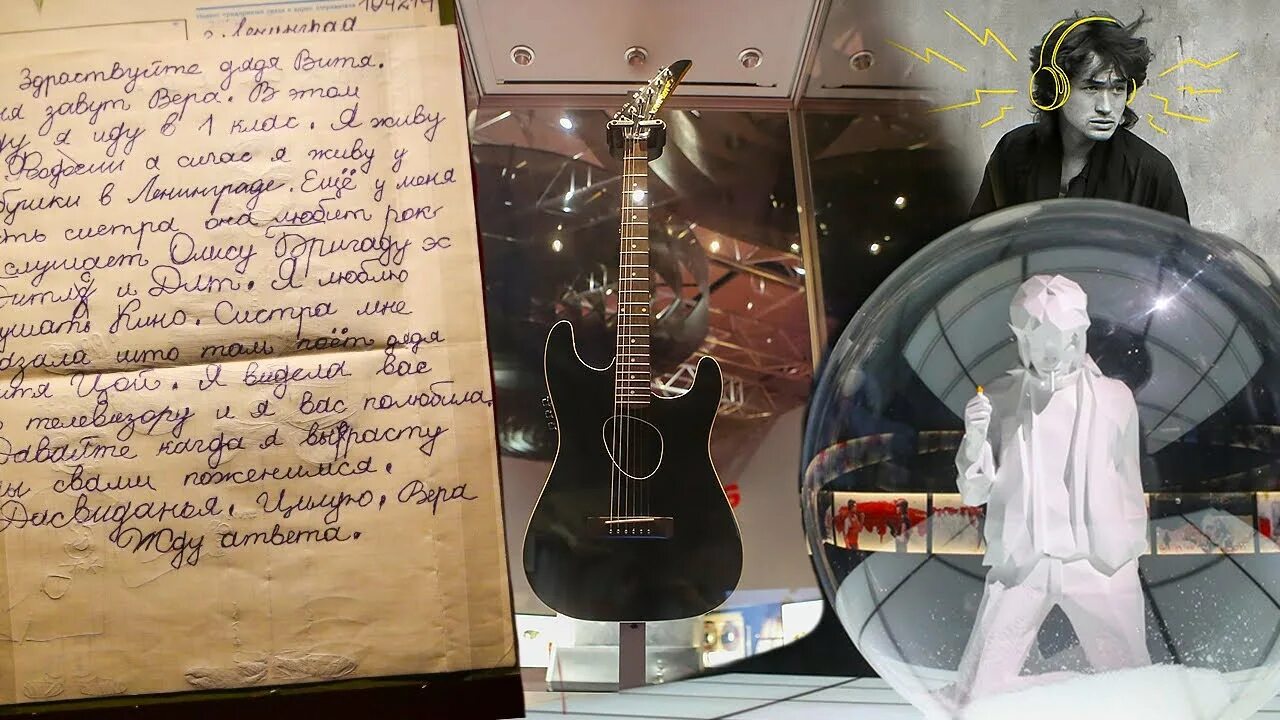 104214
г. Ленинград
Здраствуйте дядя Витя.
завут Вера. В этом
я иду в 1 клас. Я живу
а сичас я живу у
в Ленинграде. Ещё у меня
систра она любит рок
слушает Олису Бригаду эс
и Дит. Я люблю
Кино. Систра мне
што там поёт дядя
Цой. Я видела вас
телевизору и я вас полюбила.
Давайте кагда я вырасту
свами поженимся.
Дасвиданья. Цилую. Вера
Жду атвета.